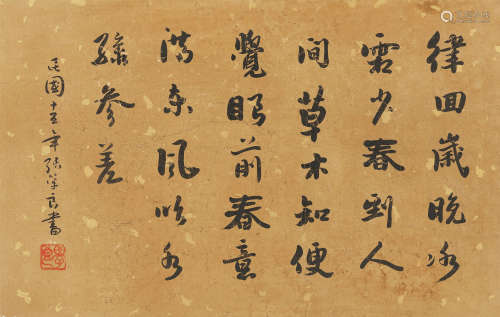 律回歲晚冰
霜少春到人
間草木知便
覺眼前春意
滿東風吹水
綠參差
民國十五年張學良書